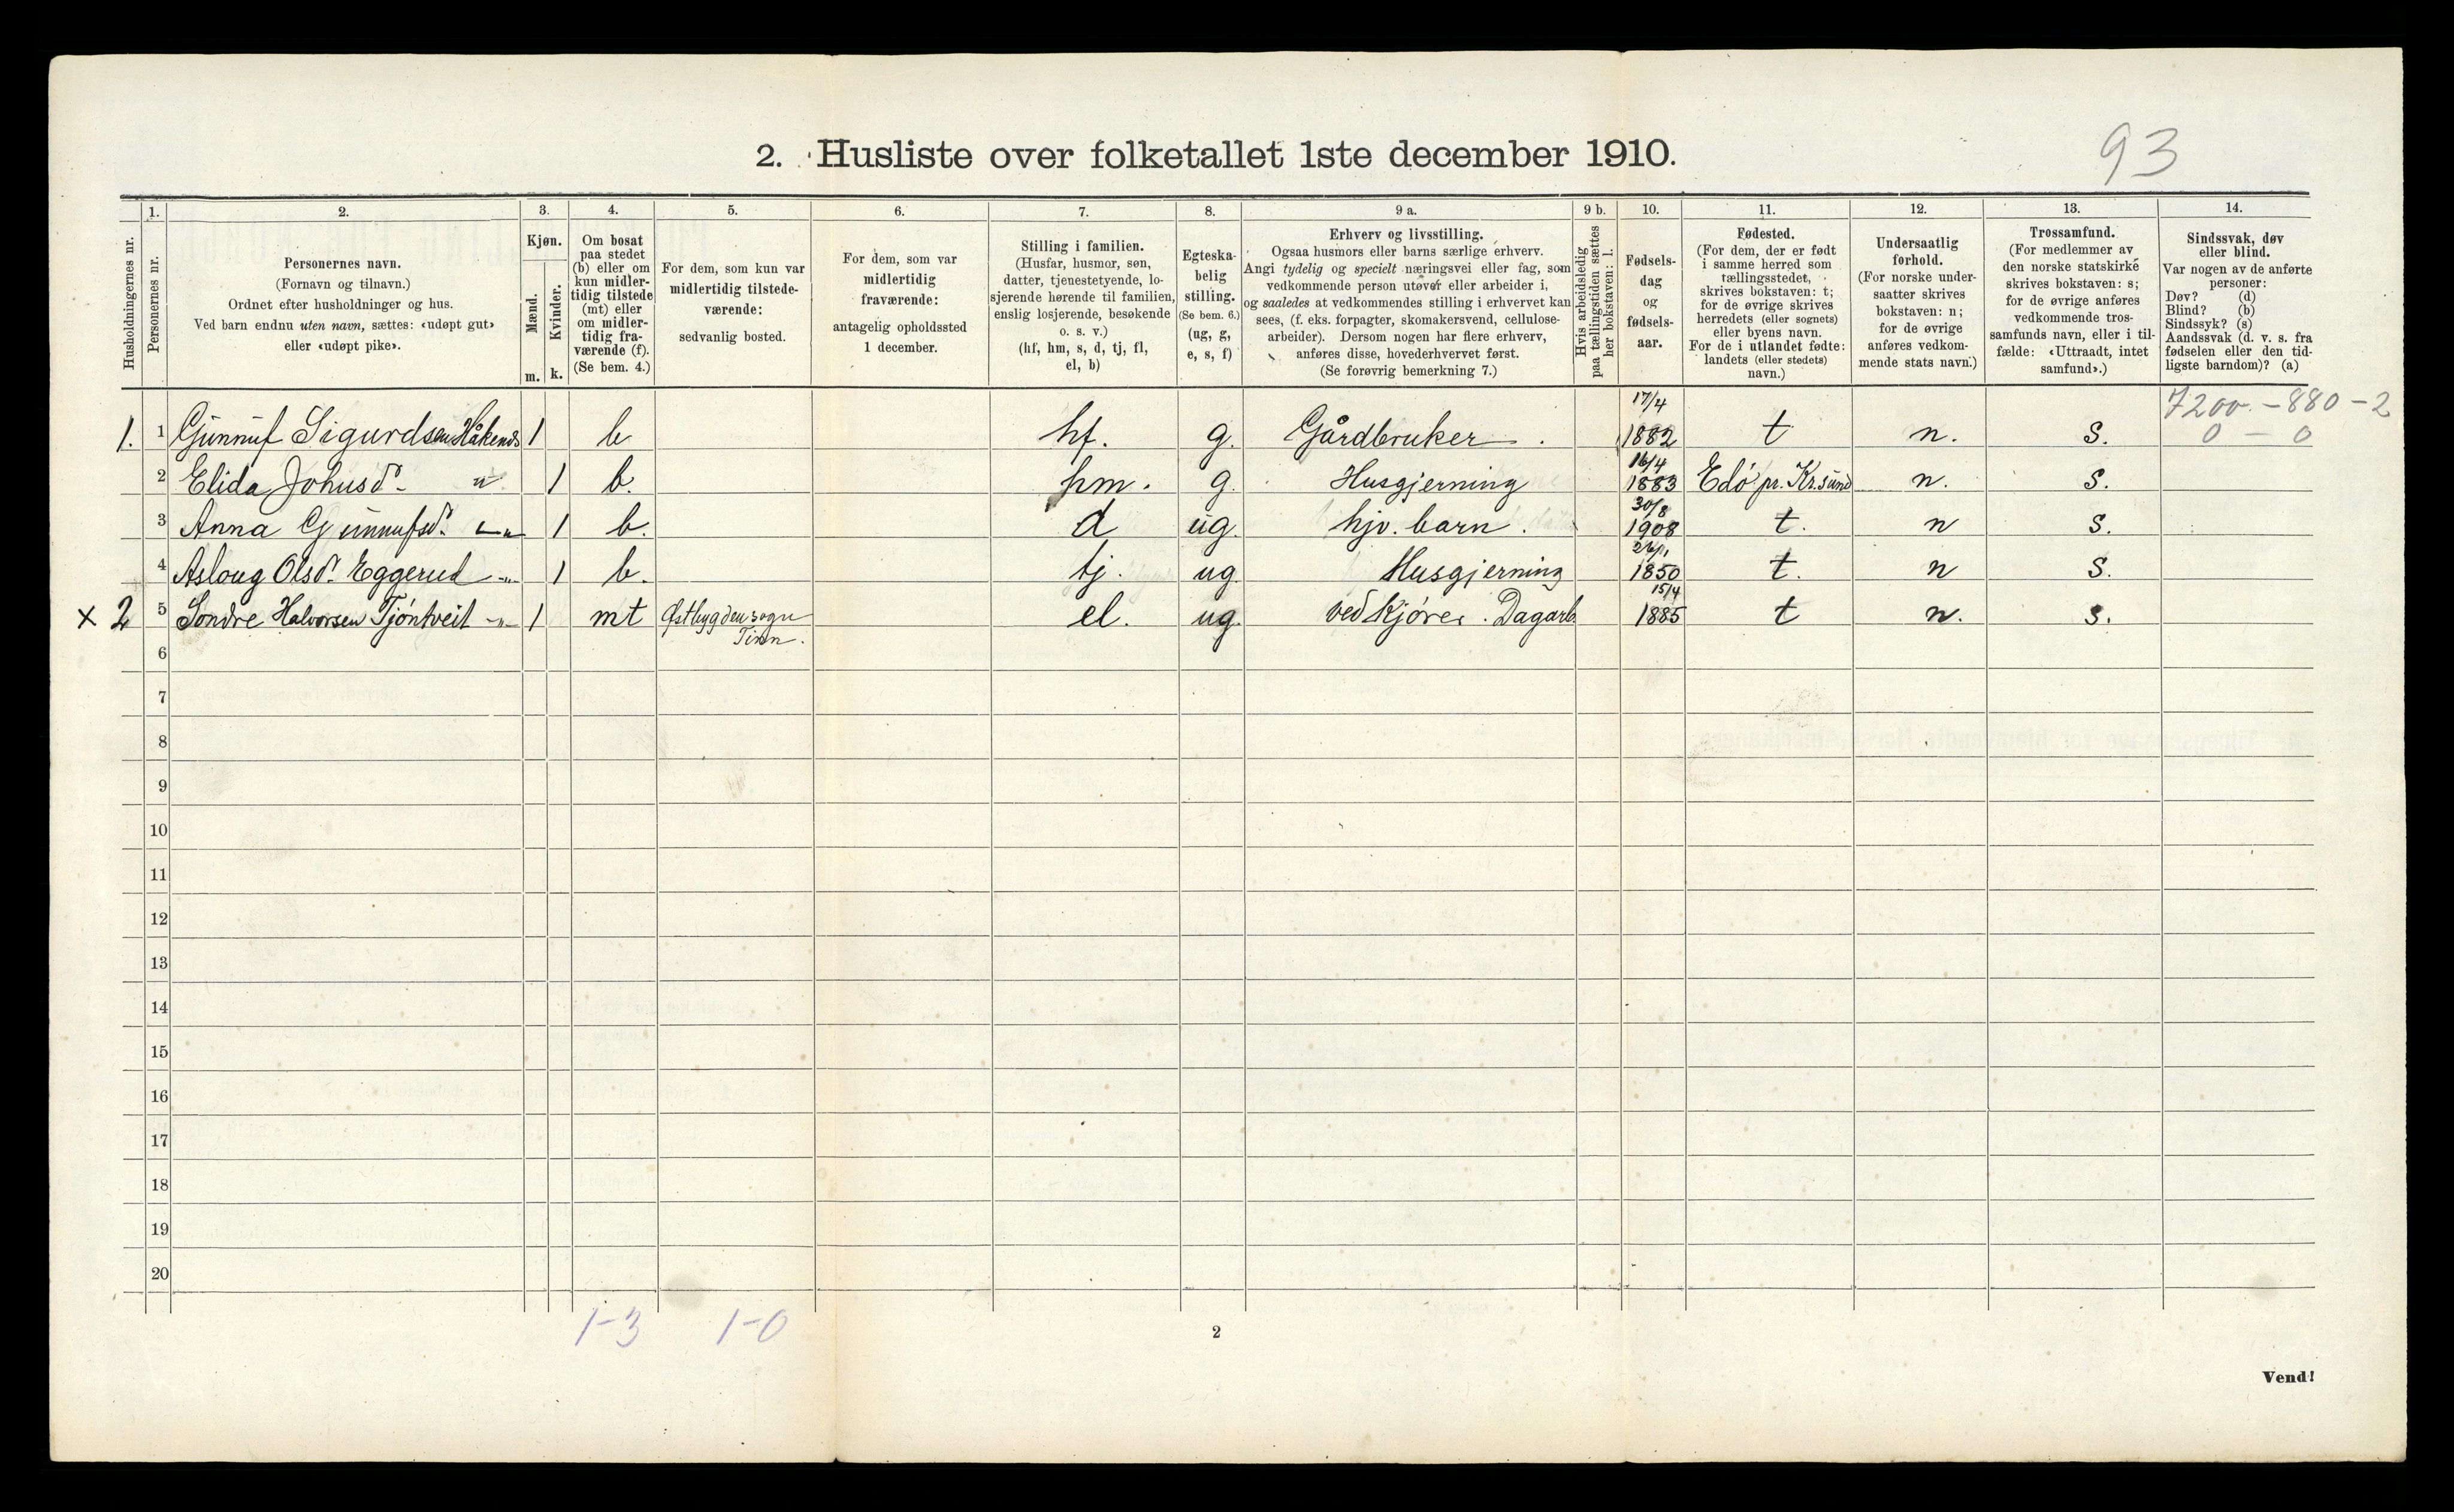 93
2. Husliste over folketallet 1ste december 1910.
Husholdningernes nr.
1.
Personernes nr.
2.
Personernes navn.
(Fornavn og tilnavn.)
Ordnet efter husholdninger og hus.
Ved barn endnu uten navn, sættes: «udøpt gut»
eller «udøpt pike».
3.
Kjøn.
Mænd.
Kvinder.
m. k.
4.
Om bosat
paa stedet
(b) eller om
kun midler-
tidig tilstede
(mt) eller
om midler-
tidig fra-
værende (f).
(Se bem. 4.)
5.
For dem, som kun var
midlertidig tilstede-
værende:
sedvanlig bosted.
6.
For dem, som var
midlertidig
fraværende:
antagelig opholdssted
1 december.
7.
Stilling i familien.
(Husfar, husmor, søn,
datter, tjenestetyende, lo-
sjerende hørende til familien,
enslig losjerende, besøkende
o. s. v.)
(hf, hm, s, d, tj, fl,
el, b)
8.
Egteska-
belig
stilling.
(Se bem. 6.)
(ug, g,
e, s, f)
9 a.
Erhverv og livsstilling.
Ogsaa husmors eller barns særlige erhverv.
Angi tydelig og specielt næringsvei eller fag, som
vedkommende person utøver eller arbeider i,
og saaledes at vedkommendes stilling i erhvervet kan
sees, (f. eks. forpagter, skomakersvend, cellulose-
arbeider). Dersom nogen har flere erhverv,
anføres disse, hovederhvervet først.
(Se forøvrig bemerkning 7.)
9 b.
Hvis arbeidsledig
paa tællingstiden sættes
her bokstaven: l.
10.
Fødsels-
dag
og
fødsels-
aar.
11.
Fødested.
(For dem, der er født
i samme herred som
tællingsstedet,
skrives bokstaven: t;
for de øvrige skrives
herredets (eller sognets)
eller byens navn.
For de i utlandet fødte:
landets (eller stedets)
navn.)
12.
Undersaatlig
forhold.
(For norske under-
saatter skrives
bokstaven: n;
for de øvrige
anføres vedkom-
mende stats navn.)
13.
Trossamfund.
(For medlemmer av
den norske statskirke
skrives bokstaven: s;
for de øvrige anføres
vedkommende tros-
samfunds navn, eller i til-
fælde: «Uttraadt, intet
samfund».)
14.
Sindssvak, døv
eller blind.
Var nogen av de anførte
personer:
Døv? (d)
Blind? (b)
Sindssyk? (s)
Aandssvak (d. v. s. fra
fødselen eller den tid-
ligste barndom)? (a)
7200 - 880 - 2
0 - 0
1. 1 Gunnuf Sigurdsen Håkenås 1 b hf. g. Gårdbruker. 17/4 1882 t n. S.
2 Elida Johusd. " 1 b. hm. g. Husgjerning 16/4 1883 Edö pr. Kr.sund n. S.
3 Anna Gunnufsd. -"- 1 b. d ug. hjv. barn. 30/8 1908 t. n S.
4 Aslaug Olsd. Eggerud -"- 1 b. tj. ug. Husgjerning 1850 t. n S.
x 2 5 Sondre Halvorsen Tjöntveit -"- 1 mt Østbygden sogn Tinn. el. ug. ved Kjörer. Dagarb. 15/4 1885 t n. s.
6
7
8
9
10
11
12
13
14
15
16
17
18
19
20
1-3 1-0
2
Vend!